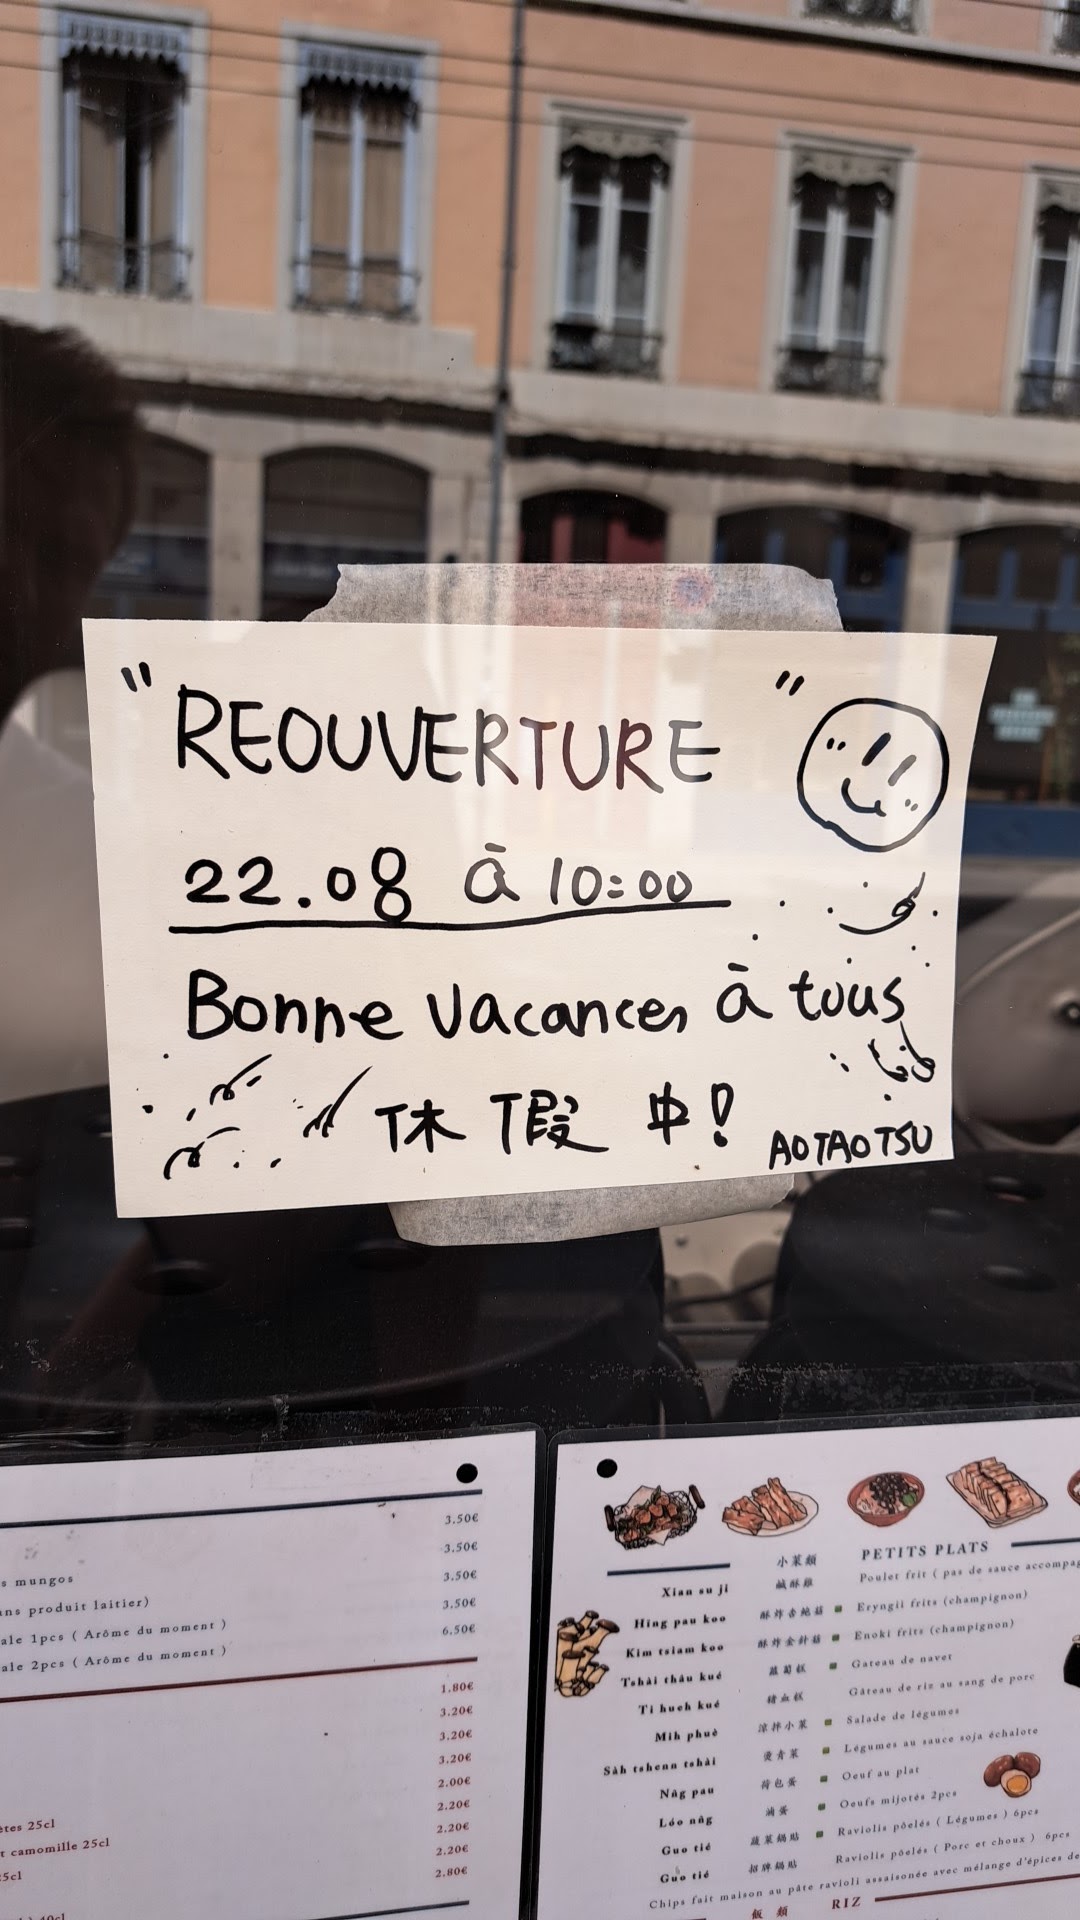 " REOUVERTURE "
22.08 à 10:00
Bonne vacances à tous
休 假 中!
AOTAOTSU
3.50€
3.50€
s mungos 3.50€
ans produit laitier) 3.50€
ale 1pcs ( Arôme du moment ) 6.50€
ale 2pcs ( Arôme du moment )
1.80€
3.20€
3.20€
3.20€
2.00€
2.20€
ètes 25cl 2.20€
t camomille 25cl 2.20€
25cl 2.80€
小菜類 PETITS PLATS
Xian su ji 鹹酥雞 Poulet frit ( pas de sauce accompag
Hing pau koo 酥炸杏鮑菇 Eryngii frits (champignon)
Kim tsiam koo 酥炸金針菇 Enoki frits (champignon)
Tshài tháu kué 蘿蔔糕 Gateau de navet
Ti hueh kué 豬血糕 Gâteau de riz au sang de porc
Mih phuè 涼拌小菜 Salade de légumes
Sàh tshenn tshài 燙青菜 Légumes au sauce soja échalote
Nn̄g pau 荷包蛋 Oeuf au plat
Lóo nn̄g 滷蛋 Oeufs mijotés 2pcs
Guo tié 蔬菜鍋貼 Raviolis pôelés ( Légumes ) 6pcs
Guo tié 招牌鍋貼 Raviolis pôelés ( Porc et choux ) 6pcs
Chips fait maison au pâte ravioli assaisonée avec mélange d'épices de
飯 類 RIZ